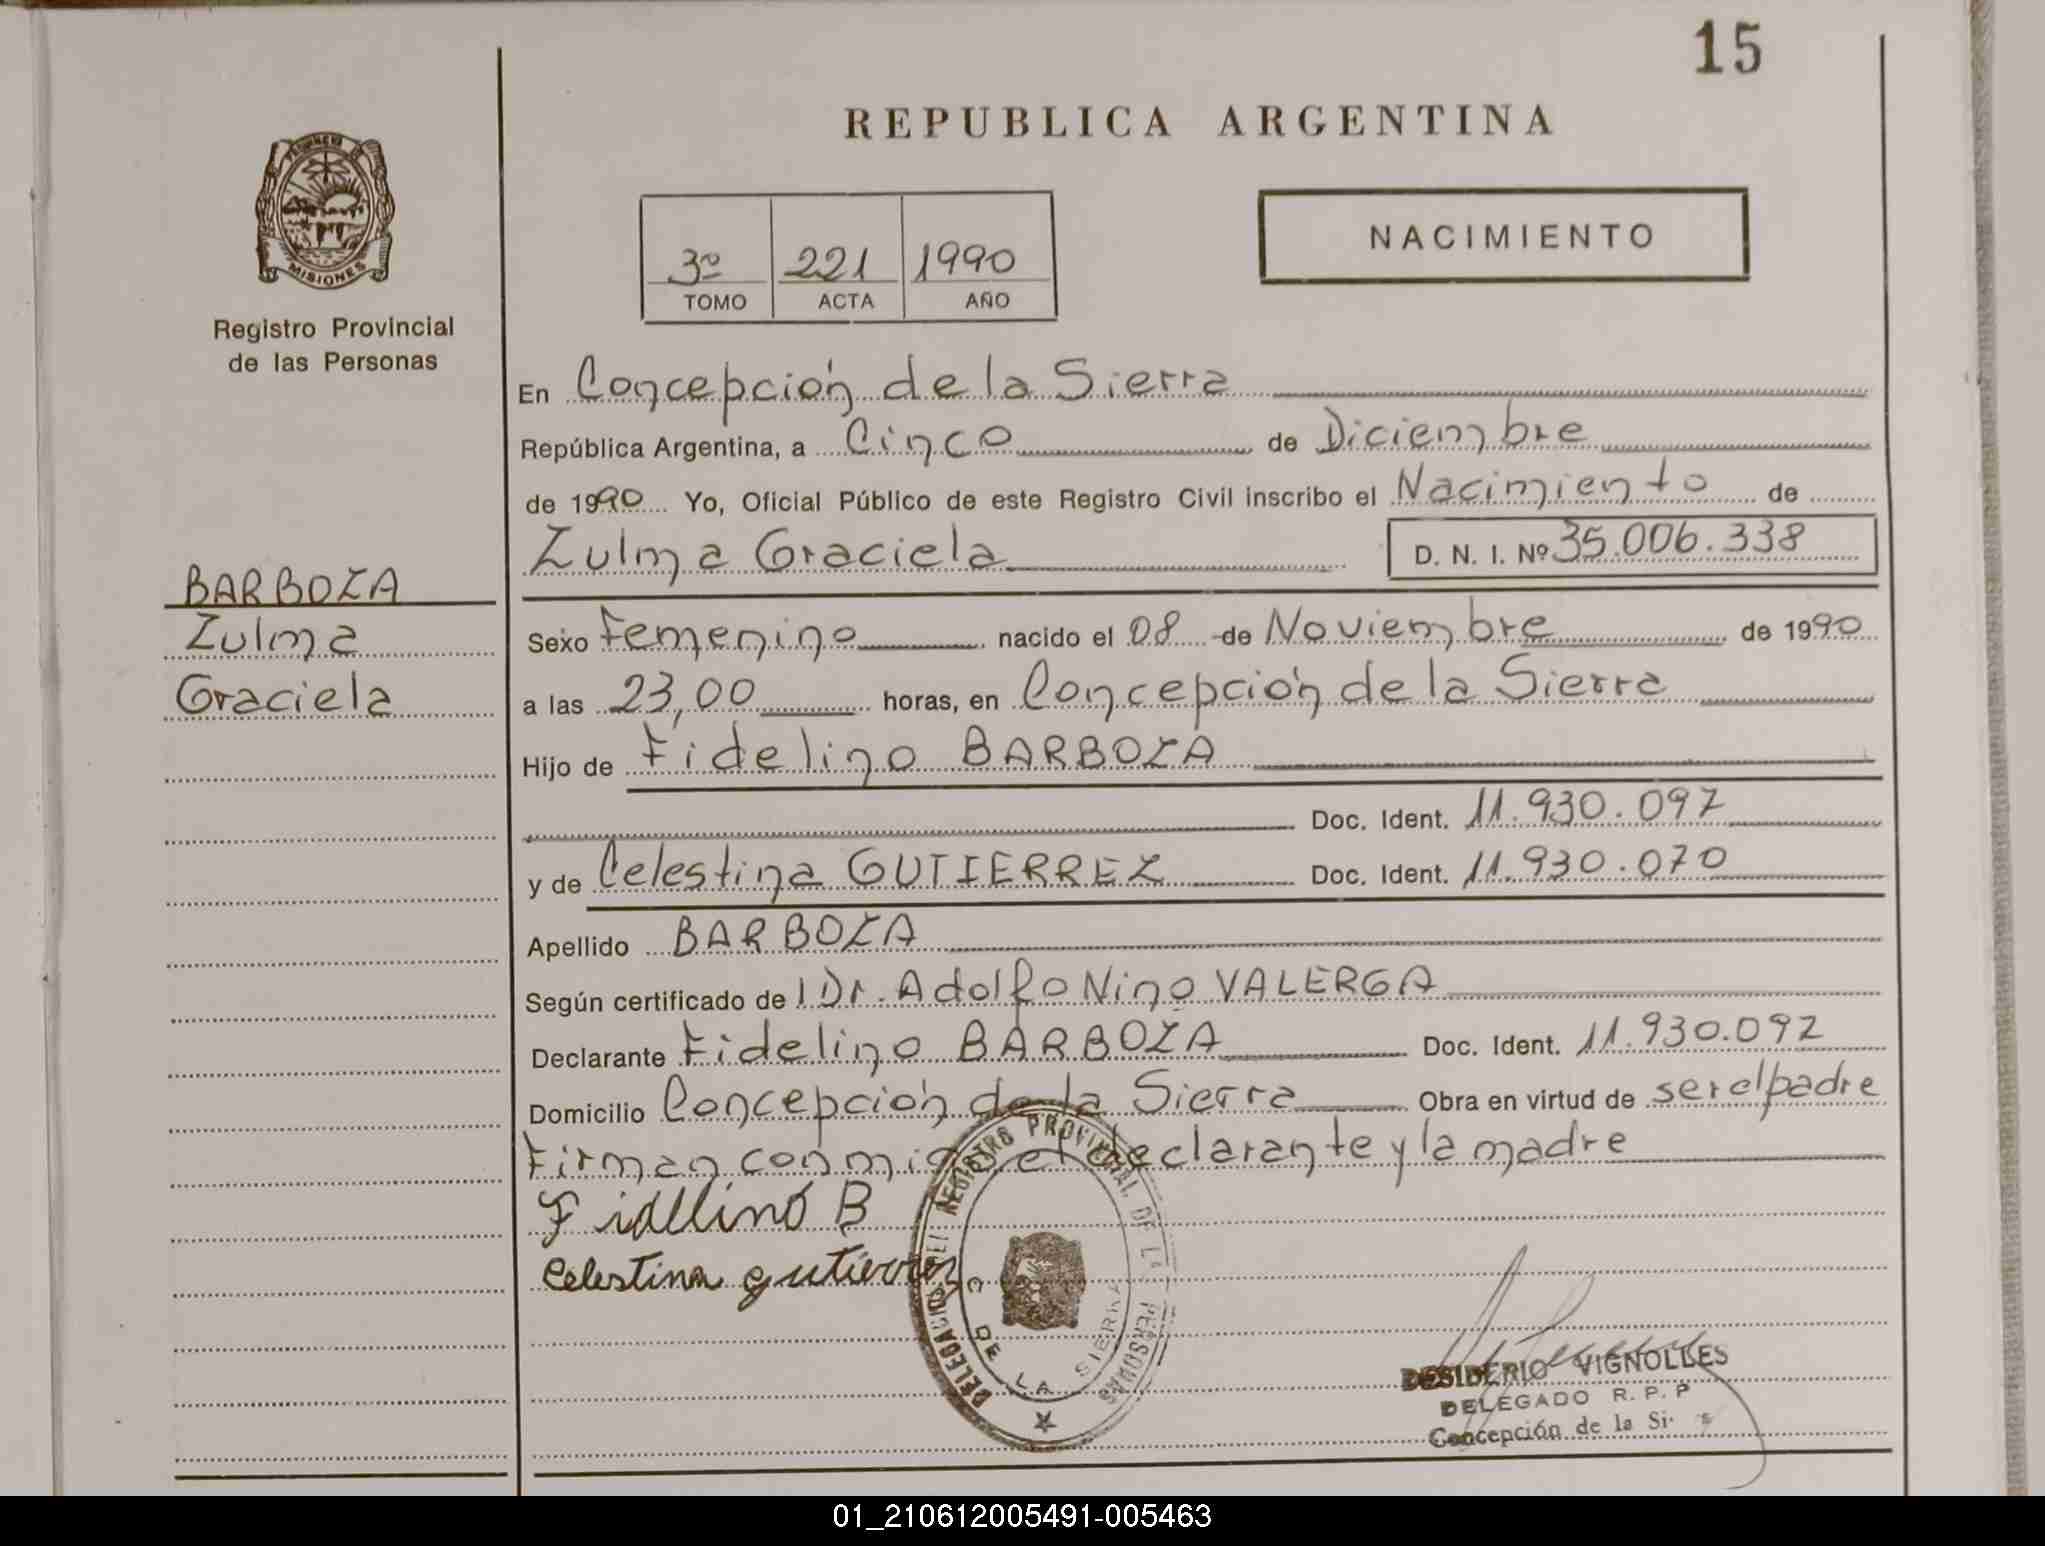 15
REPUBLICA ARGENTINA
PROVINCIA DE
MISIONES
Registro Provincial
de las Personas
3º 221 1990
TOMO ACTA AÑO
NACIMIENTO
En Concepción de la Sierra
República Argentina, a Cinco de Diciembre
de 1990 Yo, Oficial Público de este Registro Civil inscribo el Nacimiento de
Zulma Graciela D. N. I. Nº 35.006.338
BARBOZA
Zulma
Graciela
Sexo Femenino nacido el 08 de Noviembre de 1990
a las 23,00 horas, en Concepción de la Sierra
Hijo de Fidelino BARBOZA
Doc. Ident. 11.930.097
y de Celestina GUTIERREZ Doc. Ident. 11.930.070
Apellido BARBOZA
Según certificado de Dr. Adolfo Nino VALERGA
Declarante Fidelino BARBOZA Doc. Ident. 11.930.097
Domicilio Concepción de la Sierra Obra en virtud de ser el padre
Firman conmigo el declarante y la madre
Fidelino B
Celestina gutierrez
DELEGACION DEL REGISTRO PROVINCIAL DE LAS PERSONAS
C DE LA SIERRA
DESIDERIO VIGNOLLES
DELEGADO R. P. P
Concepción de la Si
01_210612005491-005463